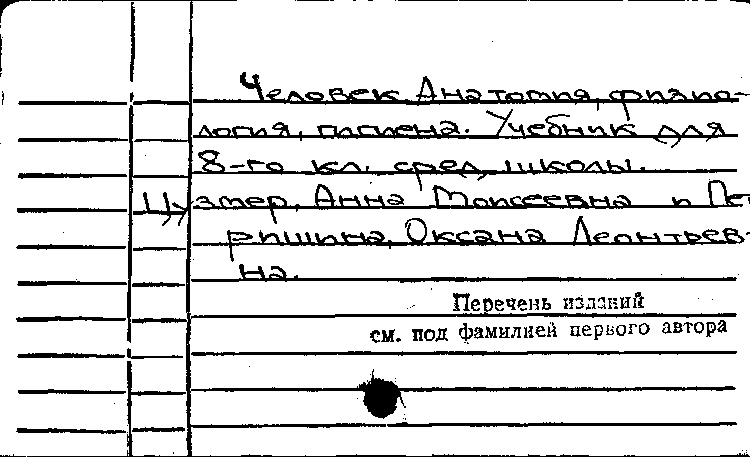 Человек. Анатомия, физио-
логия, гигиена. Учебник для
8-го кл. сред. школы.
Цузмер, Анна Моисеевна и Пет
ришина, Оксана Леонтьев-
на.
Перечень изданий
см. под фамилией первого автора